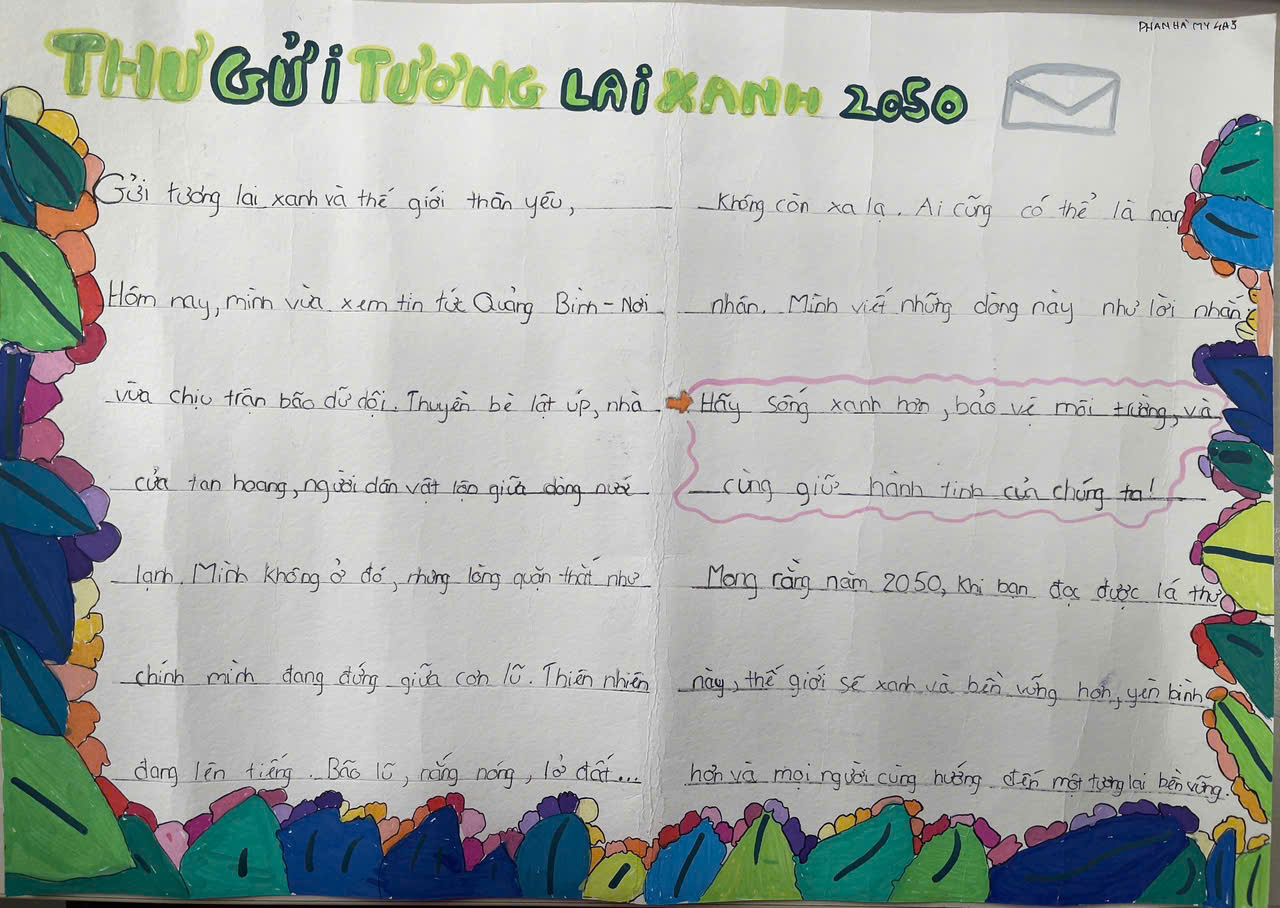 PHAN HÀ MY 4A3
THƯ GỬI TƯƠNG LAI XANH 2050
Gửi tương lai xanh và thế giới thân yêu,
Hôm nay, mình vừa xem tin tức Quảng Bình - Nơi
vừa chịu trận bão dữ dội. Thuyền bè lật úp, nhà
cửa tan hoang, người dân vật lộn giữa dòng nước
lạnh. Mình không ở đó, nhưng lòng quặn thắt như
chính mình đang đứng giữa cơn lũ. Thiên nhiên
đang lên tiếng. Bão lũ, nắng nóng, lở đất...
không còn xa lạ. Ai cũng có thể là nạn
nhân. Mình viết những dòng này như lời nhắn:
Hãy sống xanh hơn, bảo vệ môi trường, và
cùng giữ hành tinh của chúng ta!
Mong rằng năm 2050, khi bạn đọc được lá thư
này, thế giới sẽ xanh và bền vững hơn, yên bình
hơn và mọi người cùng hướng đến một tương lai bền vững.